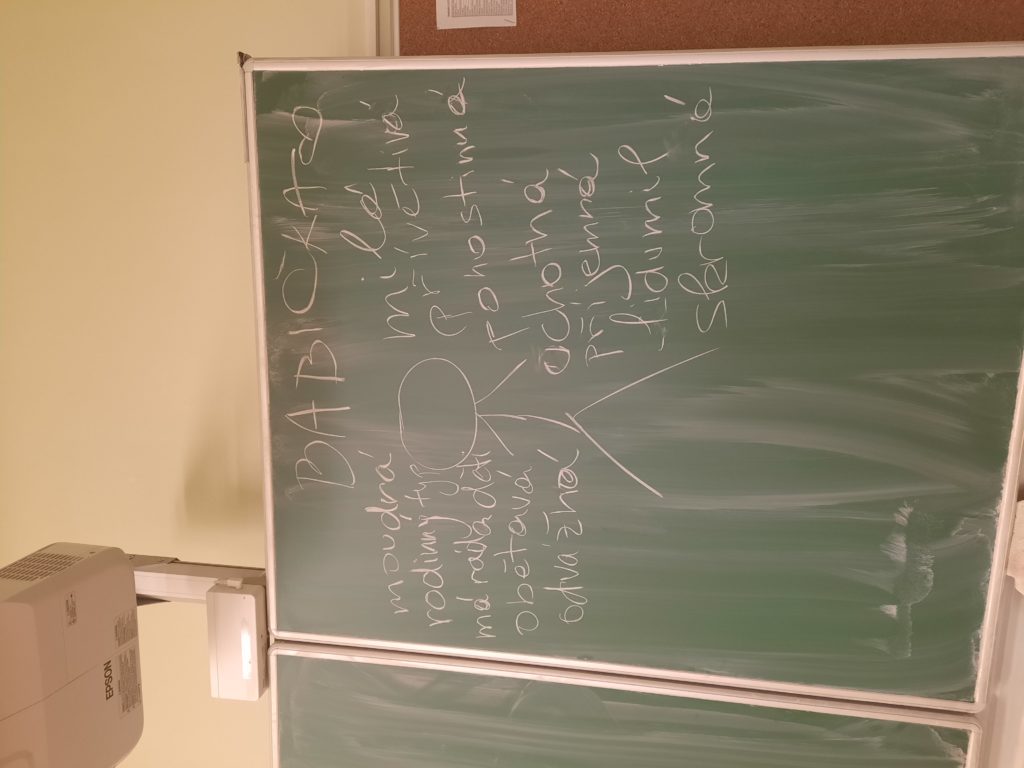 BABIČKA
moudrá
rodinný typ
má ráda děti
obětavá
odvážná
milá
přívětivá
pohostinná
ochotná
příjemná
- lidumil
skromná
EPSON